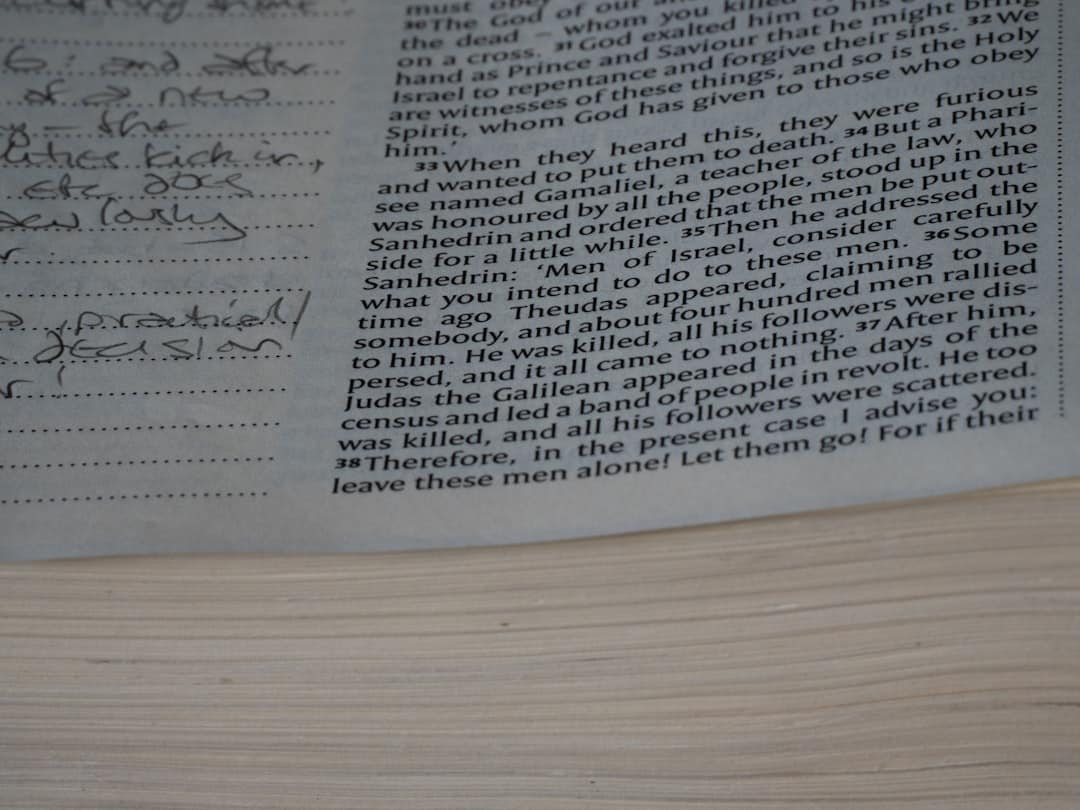 6: and after
of a new
– the
kick in,
etc, does
practical/
decision
must obey
30 The God of our
the dead – whom you killed
on a cross. 31 God exalted him to his
hand as Prince and Saviour that he might bring
Israel to repentance and forgive their sins. 32 We
are witnesses of these things, and so is the Holy
Spirit, whom God has given to those who obey
him.’
33 When they heard this, they were furious
and wanted to put them to death. 34 But a Phari-
see named Gamaliel, a teacher of the law, who
was honoured by all the people, stood up in the
Sanhedrin and ordered that the men be put out-
side for a little while. 35 Then he addressed the
Sanhedrin: ‘Men of Israel, consider carefully
what you intend to do to these men. 36 Some
time ago Theudas appeared, claiming to be
somebody, and about four hundred men rallied
to him. He was killed, all his followers were dis-
persed, and it all came to nothing. 37 After him,
Judas the Galilean appeared in the days of the
census and led a band of people in revolt. He too
was killed, and all his followers were scattered.
38 Therefore, in the present case I advise you:
leave these men alone! Let them go! For if their